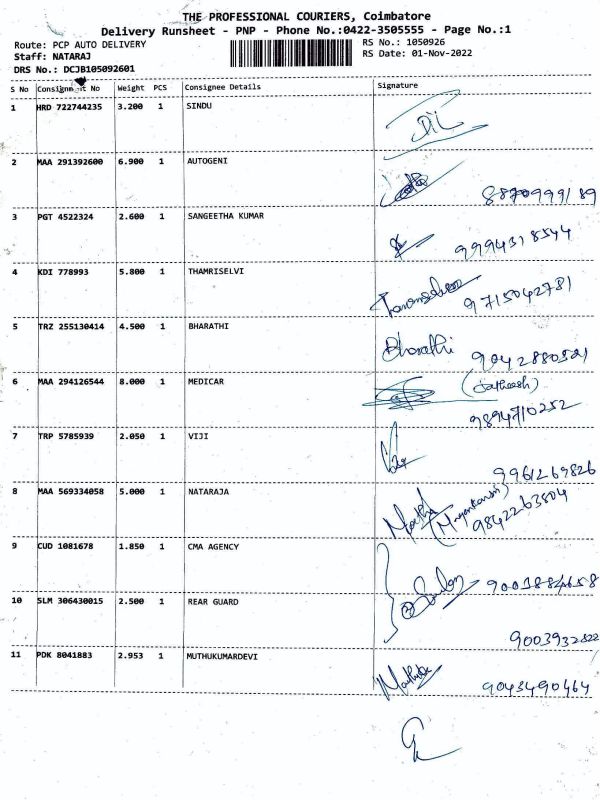 THE PROFESSIONAL COURIERS, Coimbatore
Delivery Runsheet - PNP - Phone No.:0422-3505555 - Page No.:1
Route: PCP AUTO DELIVERY
RS No.: 1050926
Staff: NATARAJ
RS Date: 01-Nov-2022
DRS No.: DCJB105092601
S No Consignment No Weight PCS Consignee Details Signature
1 HRD 722744235 3.200 1 SINDU
2 MAA 291392600 6.900 1 AUTOGENI
8870999189
3 PGT 4522324 2.600 1 SANGEETHA KUMAR
9994318544
4 KDI 778993 5.800 1 THAMRISELVI
9715042781
5 TRZ 255130414 4.500 1 BHARATHI
Bharathi 9042880521
6 MAA 294126544 8.000 1 MEDICAR
(Satheesh)
9894710252
7 TRP 5785939 2.050 1 VIJI
9961269826
8 MAA 569334058 5.000 1 NATARAJA
9842263804
9 CUD 1081678 1.850 1 CMA AGENCY
9003884658
10 SLM 306430015 2.500 1 REAR GUARD
9003932822
11 PDK 8041883 2.953 1 MUTHUKUMARDEVI
9043490464